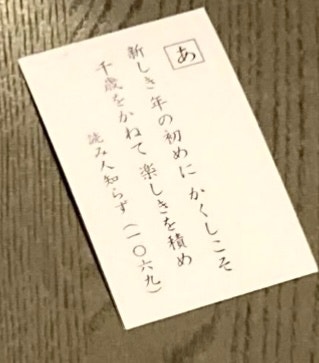 あ
新しき年の初めに かくしこそ
千歳をかねて 楽しきを積め
読み人知らず(一〇六九)